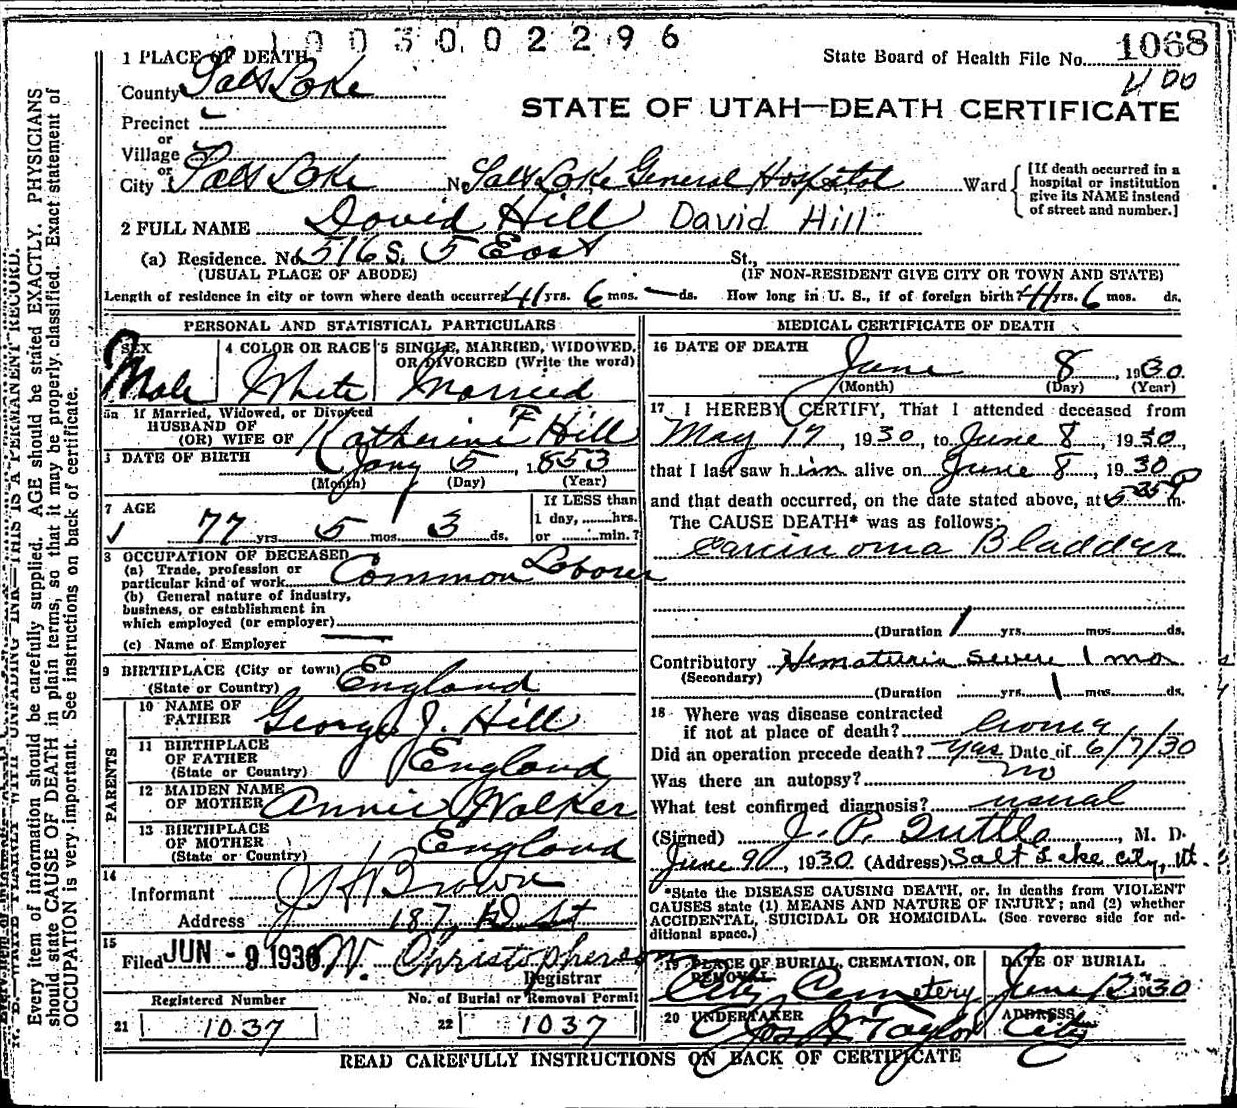 10030002296
1 PLACE OF DEATH
State Board of Health File No. 1068
400
County Salt Lake
STATE OF UTAH—DEATH CERTIFICATE
Precinct
or
Village
or
City Salt Lake No. Salt Lake General Hospital Ward
[If death occurred in a
hospital or institution
give its NAME instead
of street and number.]
2 FULL NAME David Hill David Hill
(a) Residence. No. 516 S. 5 East St.,
(USUAL PLACE OF ABODE) (IF NON-RESIDENT GIVE CITY OR TOWN AND STATE)
Length of residence in city or town where death occurred 41 yrs. 6 mos. — ds. How long in U. S., if of foreign birth? 41 yrs. 6 mos. ds.
PERSONAL AND STATISTICAL PARTICULARS
SEX
Male
4 COLOR OR RACE
White
5 SINGLE, MARRIED, WIDOWED,
OR DIVORCED (Write the word)
Married
5a If Married, Widowed, or Divorced
HUSBAND OF
(OR) WIFE OF Katherine F Hill
DATE OF BIRTH Jany 5, 1853
(Month) (Day) (Year)
7 AGE
77 yrs. 5 mos. 3 ds.
If LESS than
1 day, ......hrs.
or ......min.?
8 OCCUPATION OF DECEASED
(a) Trade, profession or
particular kind of work Common Laborer
(b) General nature of industry,
business, or establishment in
which employed (or employer)
(c) Name of Employer
9 BIRTHPLACE (City or town)
(State or Country) England
PARENTS
10 NAME OF
FATHER George J. Hill
11 BIRTHPLACE
OF FATHER
(State or Country) England
12 MAIDEN NAME
OF MOTHER Annie Walker
13 BIRTHPLACE
OF MOTHER
(State or Country) England
14
Informant J H Brown
Address 187 D St
15
Filed JUN - 9 1930 W. Christopherson
Registrar
Registered Number
21 1037
No. of Burial or Removal Permit
22 1037
MEDICAL CERTIFICATE OF DEATH
16 DATE OF DEATH
June 8, 1930
(Month) (Day) (Year)
17 I HEREBY CERTIFY, That I attended deceased from
May 17, 1930, to June 8, 1930,
that I last saw him alive on June 8, 1930
and that death occurred, on the date stated above, at 5 35 P m.
The CAUSE DEATH* was as follows:
Carcinoma Bladder
(Duration 1 yrs. mos. ds.
Contributory Hematuria severe 1 mo
(Secondary)
(Duration yrs. 1 mos. ds.
18 Where was disease contracted
if not at place of death?
Did an operation precede death? Yes Date of 6/7/30
Was there an autopsy? no
What test confirmed diagnosis? usual
(Signed) J. P. Tuttle, M. D.
June 9, 1930 (Address) Salt Lake City, Ut.
*State the DISEASE CAUSING DEATH, or, in deaths from VIOLENT
CAUSES state (1) MEANS AND NATURE OF INJURY; and (2) whether
ACCIDENTAL, SUICIDAL OR HOMICIDAL. (See reverse side for ad-
ditional space.)
19 PLACE OF BURIAL, CREMATION, OR
REMOVAL
City Cemetery
DATE OF BURIAL
June 12 1930
20 UNDERTAKER
Jos Wm Taylor
ADDRESS
City
READ CAREFULLY INSTRUCTIONS ON BACK OF CERTIFICATE
THIS IS A PERMANENT RECORD.
Every item of information should be carefully supplied. AGE should be stated EXACTLY. PHYSICIANS
should state CAUSE OF DEATH in plain terms, so that it may be properly classified. Exact statement of
OCCUPATION is very important. See instructions on back of certificate.